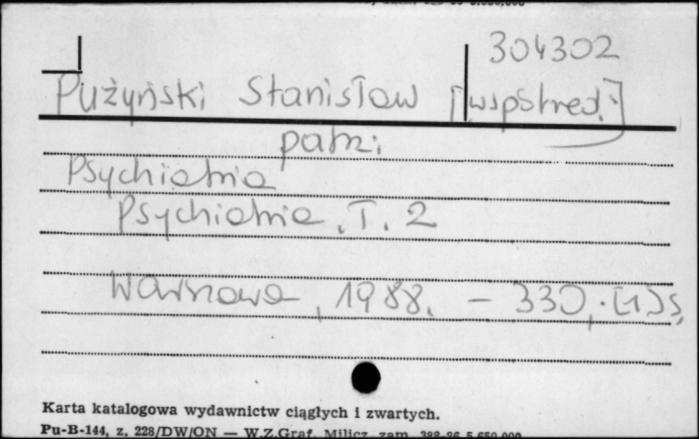 304302
Pużyński Stanisław [współred.]
patrz:
Psychiatria
Psychiatria. T. 2
Warszawa, 1988. - 330, [1] s.
Karta katalogowa wydawnictw ciągłych i zwartych.
Pu-B-144, z. 228/DW/ON — W.Z.Graf. Milicz zam. 388-86 5.650.000